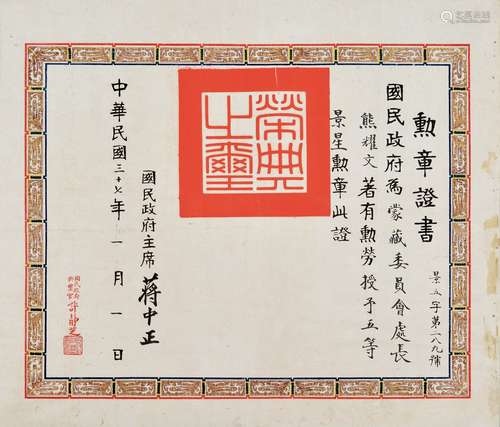 勲章證書
景五字第二八九號
國民政府為蒙藏委員會處長
熊耀文著有勲勞授予五等
景星勲章此證
榮典之璽
國民政府主席 蔣中正
中華民國三十七年一月一日
國民政府